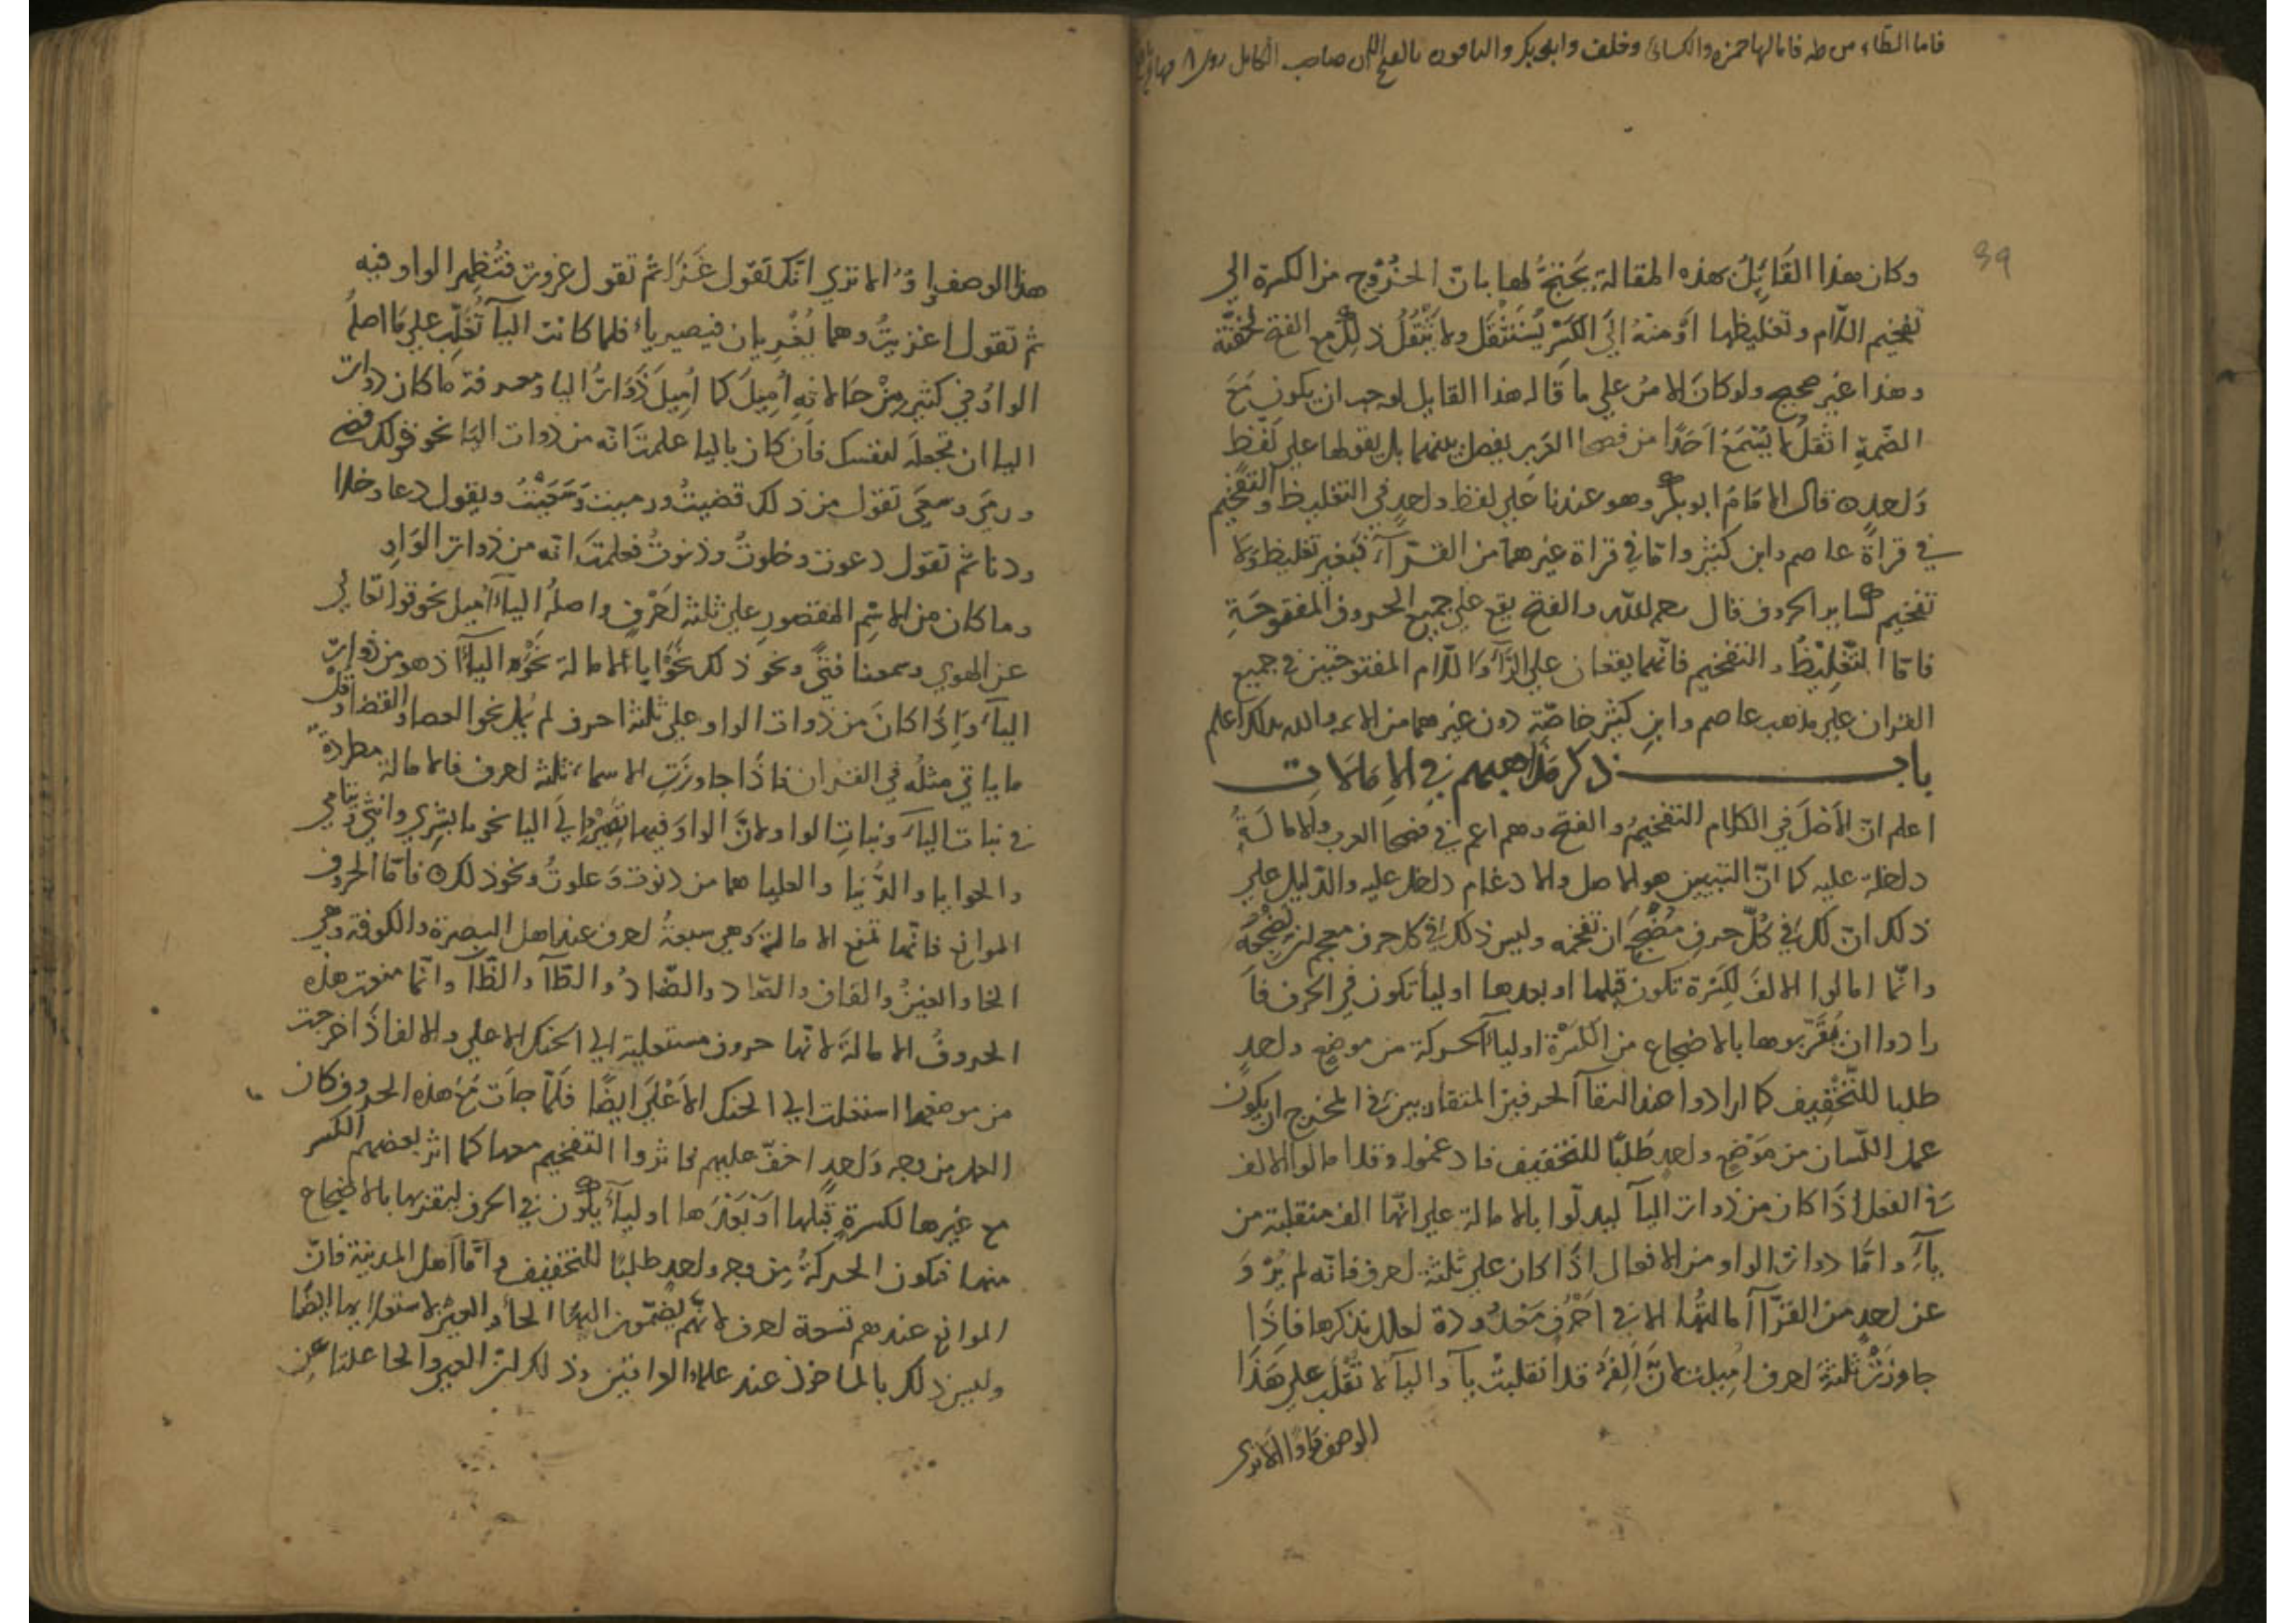 فاما الطاء من طه فامالها حمزه والكسائى وخلف وابو بكر والباقون بالفتح صاحب الكامل
39
وكان هذا القَائِلُ بهذه المقالة يَحْتَجُّ لها بانّ الخُرُوج من الكسرة الي
تفخيم اللّام وتغليظها اَوْ منهُ اِلَى الكَسْرِ يُسْتَثْقَل ولا يَثْقُلُ ذلك مع الفتح لخفّته
وهذا غير صحيح ولو كانَ الامرُ علي ما قَاله هذا القايل لوجب ان يكون مَعَ
الضّمةِ اثقلُ لا يُسْمَعُ اَحَدًا من فصحا العرب يفصل بينهما بل يقولها علي لَفْظٍ
وَاحده قال الامَامُ ابو بكر وهو عندنا عَلي لفظ واحدٍ في التغليظ والتفخيم
في قراةَ عاصم وابن كثير وامّا في قراة غيرهما من القرّاء فبغير تغليظ ولا
تفخيم كساير الحروف قال رحمه الله والفتح يقع علي جميع الحروف المفتوحَةِ
فامّا التّغلِيْظُ والتفخيم فانّهما يقعان علي الرّآءِ وَاللّام المفتوحتين في جميع
القران علي مذهب عاصم وابنِ كثير خاصّة دون غيرهما من الايمه والله بذلك اعلم
باب ذكر مَذاهبهم في الاِمَالات
اعلم انّ الاَصْلَ في الكلام التفخيمُ والفتح وهم اعم في فصحا العرب والامالَةُ
داخلة عليه كما انّ التبيين هو الاصل والادغام داخل عليه والدّليل علي
ذلك انّ لك في كُلّ حرفٍ مُضْجَعٍ ان تفخمه وليس ذلك في كل حرف معجم ان تضجعَهُ
وانّما امالوا الالفَ لِكَسْرة تكون قبلها او بعدها او لياْ تكون في الحرف فاَ
رادوا ان يُقَرّبوها بالاضجاع من الكَسْرَة او لياْ الحركة من موضع واحدٍ
طلبا للتّخْفِيف كما ارادوا هذا التقآ الحرفين المتقاربين في المخرج ان يكون
عمل اللّسان من مَوْضعٍ واحدٍ طَلبًا للتخفيف فادغموا وقد امالوا الالف
في الفعل اذَا كان من ذوات اليآ ليدلّوا بالامالة علي انّها الف منقلبة من
يآءٍ وامّا ذوات الواو من الافعال اذَا كان علي ثلثة احرف فانّه لم يُرْوَ
عن احدٍ من القرّآ امَالتُها الا في اَحْرُفٍ مَعْدُودة لعلل نذكرها فاذَا
جاوزَتْ ثلثةَ احرف اُمِيلت لانَّ اَلِفَهُ قد انقلبتْ يآ واليآ لا تُقْلَب علي هَذَا
الوصف واوًا الا ترى
هذا الوصف واوًا الا تري انّك تقول غَزَا ثم تقول غزوت فتُظهِر الواو فيه
ثم تقول اغزيتُ وهما يُغْزِيان فيصير ياءً فلما كانت اليآ تُغَلَّب علي مَا اصلُه
الواوُ في كثيرٍ مِنْ حَالاته اُمِيلَ كما اُمِيلَ ذَوَاتُ اليا ومعرفة ما كان ذوات
اليا ان تجعلَه لنفسك فان كان باليا علمتَ انّه من ذوات اليَا نحو قولك قضي
ورمَي وسعَي تقول من ذلك قضيتُ ورميت وَسَعَيْتُ ويقول دعا وخلا
ودنا ثم تقول دعوت وخلوتُ ودنوتُ فعلمتَ انّه من ذوات الوَاوِ
وما كان من الاسْمِ المقصورِ علي ثلثة احْرُفٍ واصلُهُ اليآءُ اُميلَ نحو قوله تعالي
عن الهوي وسمعنا فتًي ونحو ذلك نَحْوًا باْ الامالة نَحْوَ اليآءِ اذ هو من ذواتِ
اليآءِ وَاِذَا كانَ من ذوات الواو علي ثلثة احرف لم يُمل نحو العصا والقفا وقلّ
ما ياتي مثلُه في القران فاذَا جاوزَتِ الاسماءُ ثلثة احرف فالامالة مطردةٌ
في بنات اليآءِ وبناتِ الواو لانَّ الواوَ فيها تصيرُ اِلَي اليا نحو ما بُشْرِي وانثي ويتامي
والحوايا والدُّنيا والعليا هما من دنوت وَعلوتُ ونحو ذلك فامّا الحروف
الموانع فانّها تمنع الامالةَ وهي سبعةُ احرف عند اهل البصرة والكوفة وهي
الخا والغينُ والقاف والصّاد والضّادُ والطّآ والظّآ وانّما منعت هذه
الحروفُ الامالةَ لانّها حروف مستعلية الي الحنك الاعلي والالف اذَا خرجت
من موضعها استعلت الي الحنك الاَعْلَي ايضًا فَلَمّا جاَت مَعَ هذه الحروف كان
العمل من وجه وَاحدٍ اخفّ عليهم فاثروا التفخيم معها كما اثر بعضهم الكسر
مع غيرها لكسرةٍ قَبلها اَوْ بَعْدَها او ليآءٍ يكون في الحرف ليقربها بالاضجاع
منهما فتكون الحركةُ مِن وجه واحدٍ طلبًا للتخفيف وامّا اهل المدينة فانّ
الموانع عندهم تسعة احرف لانّهم يضمّون اليهَا الحأ والعين لاستعلايهما ايضًا
وليس ذلك بالماخوذ عند علماء الوافين وذلك لان العين والحا علتا عن